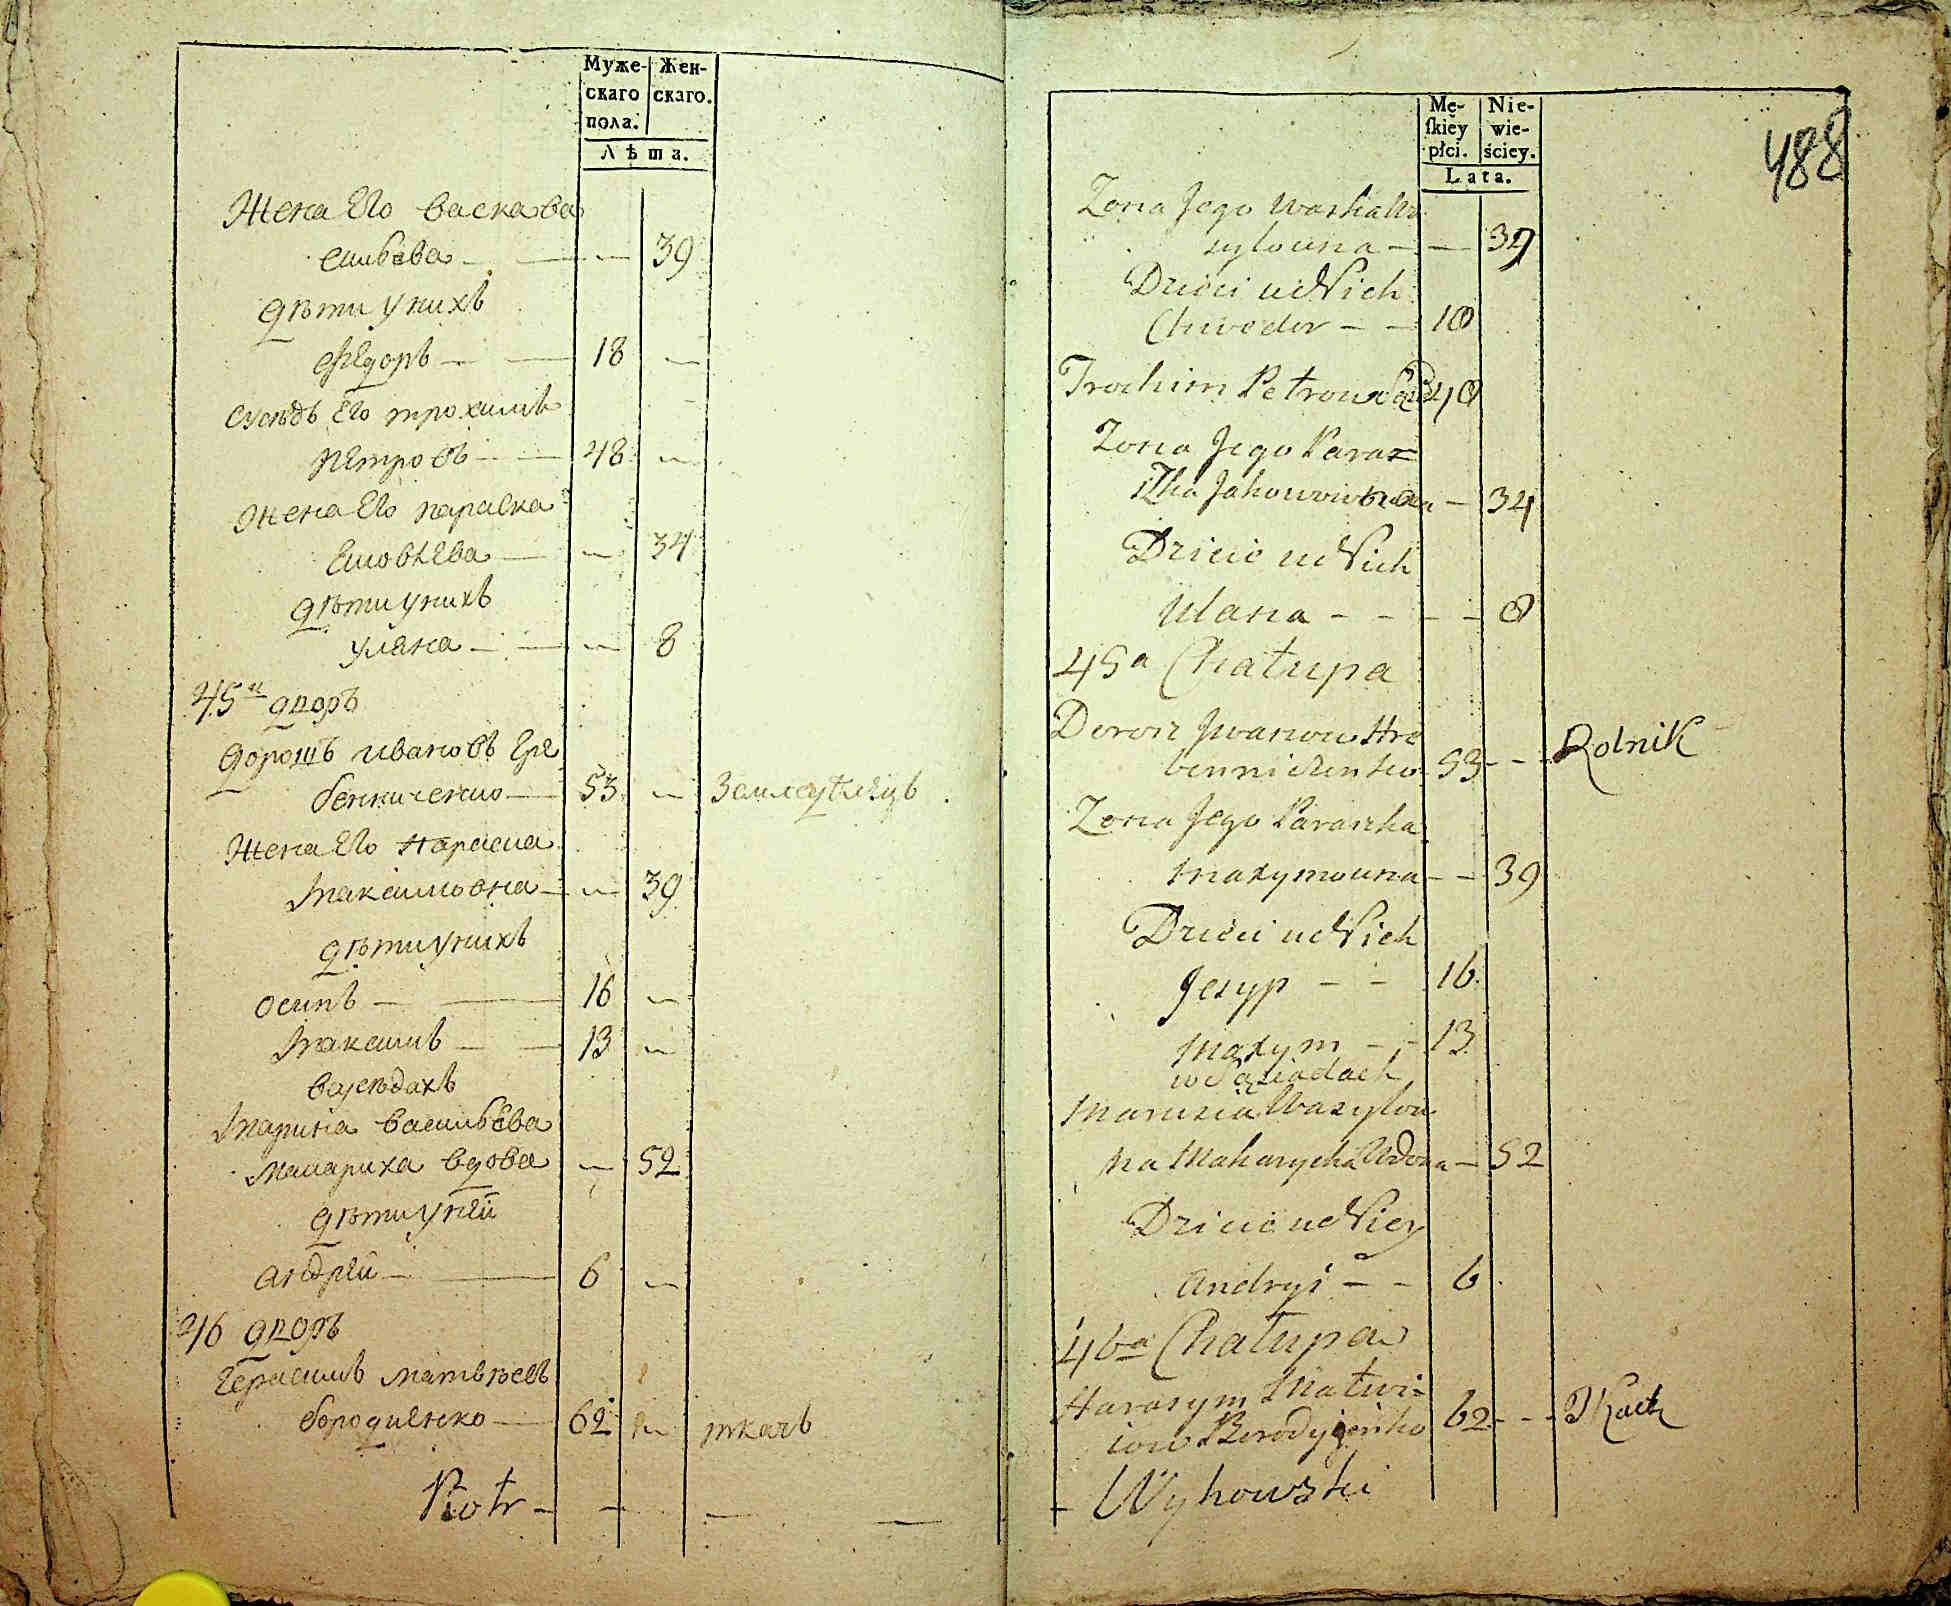 Муже-
скаго
пола.
Жен-
скаго.
Лѣта.
Жена Его васка ва
сильева — — 39
дѣти У нихъ
Ѳедоръ — — 18 —
сусѣдъ Его трохимъ
Петровъ — — 48 —
Жена Его параска
— — 34
дѣти у нихъ
уляна — — — 8
45й дворъ
дорошъ ивановъ Гре
бенниченко — 53 —
Жена Его параска
Максимовна — — 39
дѣти у нихъ
осипъ — — 16 —
Максимъ — — 13 —
в сусѣдахъ
Марина васильева
Макариха вдова — 52
дѣти У ней
андрей — — 6 —
46 дворъ
Герасимъ матвѣевъ
бородиенко — 62 — ткачъ
Piotr — — — —
Mę-
ſkiěy
płci.
Nie-
wie-
ściey.
Lata.
488
Zona Jego Waska Wa
sylowna — — 39
Dzieci u Nich
Chwedor — — 18
Trochim Petrow 48
Zona Jego Paraz=
— 34
Dzieci u Nich
Ulana - - - - 8
45a Chałupa
Dorosz Jwanow Hre
benniczenko 53 - - - Rolnik
Zona Jego Paraszka
Maxymowna - - 39
Dzieci u Nich
Jesyp - - 16
Maxym - - 13
w Sąsiadach
Marusia Wasylow
na Makarycha Wdowa — 52
Dzieci u Niey
Andryi - - 6
46a Chałupa
Harasym Matwi=
iow Borodyienko 62 - - - Tkacz
- Wyhowski